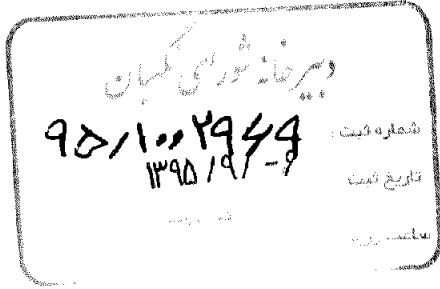 دبیرخانه شورای نگهبان
شماره ثبت: ۹۵/۱۰۰۲۹۶۹
تاریخ ثبت ۱۳۹۵/۹/-۹